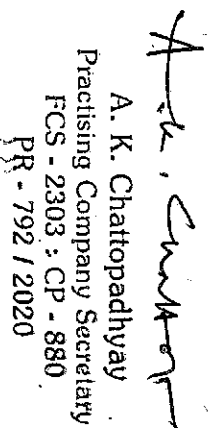 A. K. Chattopadhyay
Practising Company Secretary
FCS - 2303 : CP - 880
PR - 792 / 2020